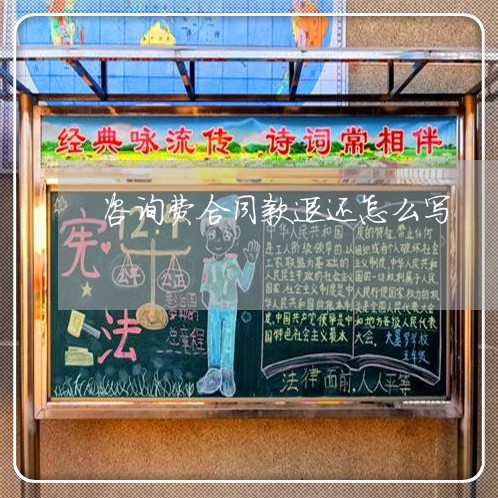 经典咏流传 诗词常相伴
咨询费合同款退还怎么写
宪法
12.4
公平
公正
总章程
中华人民共和国
是工人阶级领导的,以
工农联盟为基础的
人民民主专政的社会主义
国家,社会主义制度是中
华人民共和国的根本制
度,中国共产党领导是中
国特色社会主义最本
质的特征,禁止任何
组织或者个人破坏社会
主义制度,中华人民共和
国的一切权利属于人民,
人民行使国家权力的机
关是全国人民代表大会
和地方各级人民代表
大会。
五年级
法律面前,人人平等